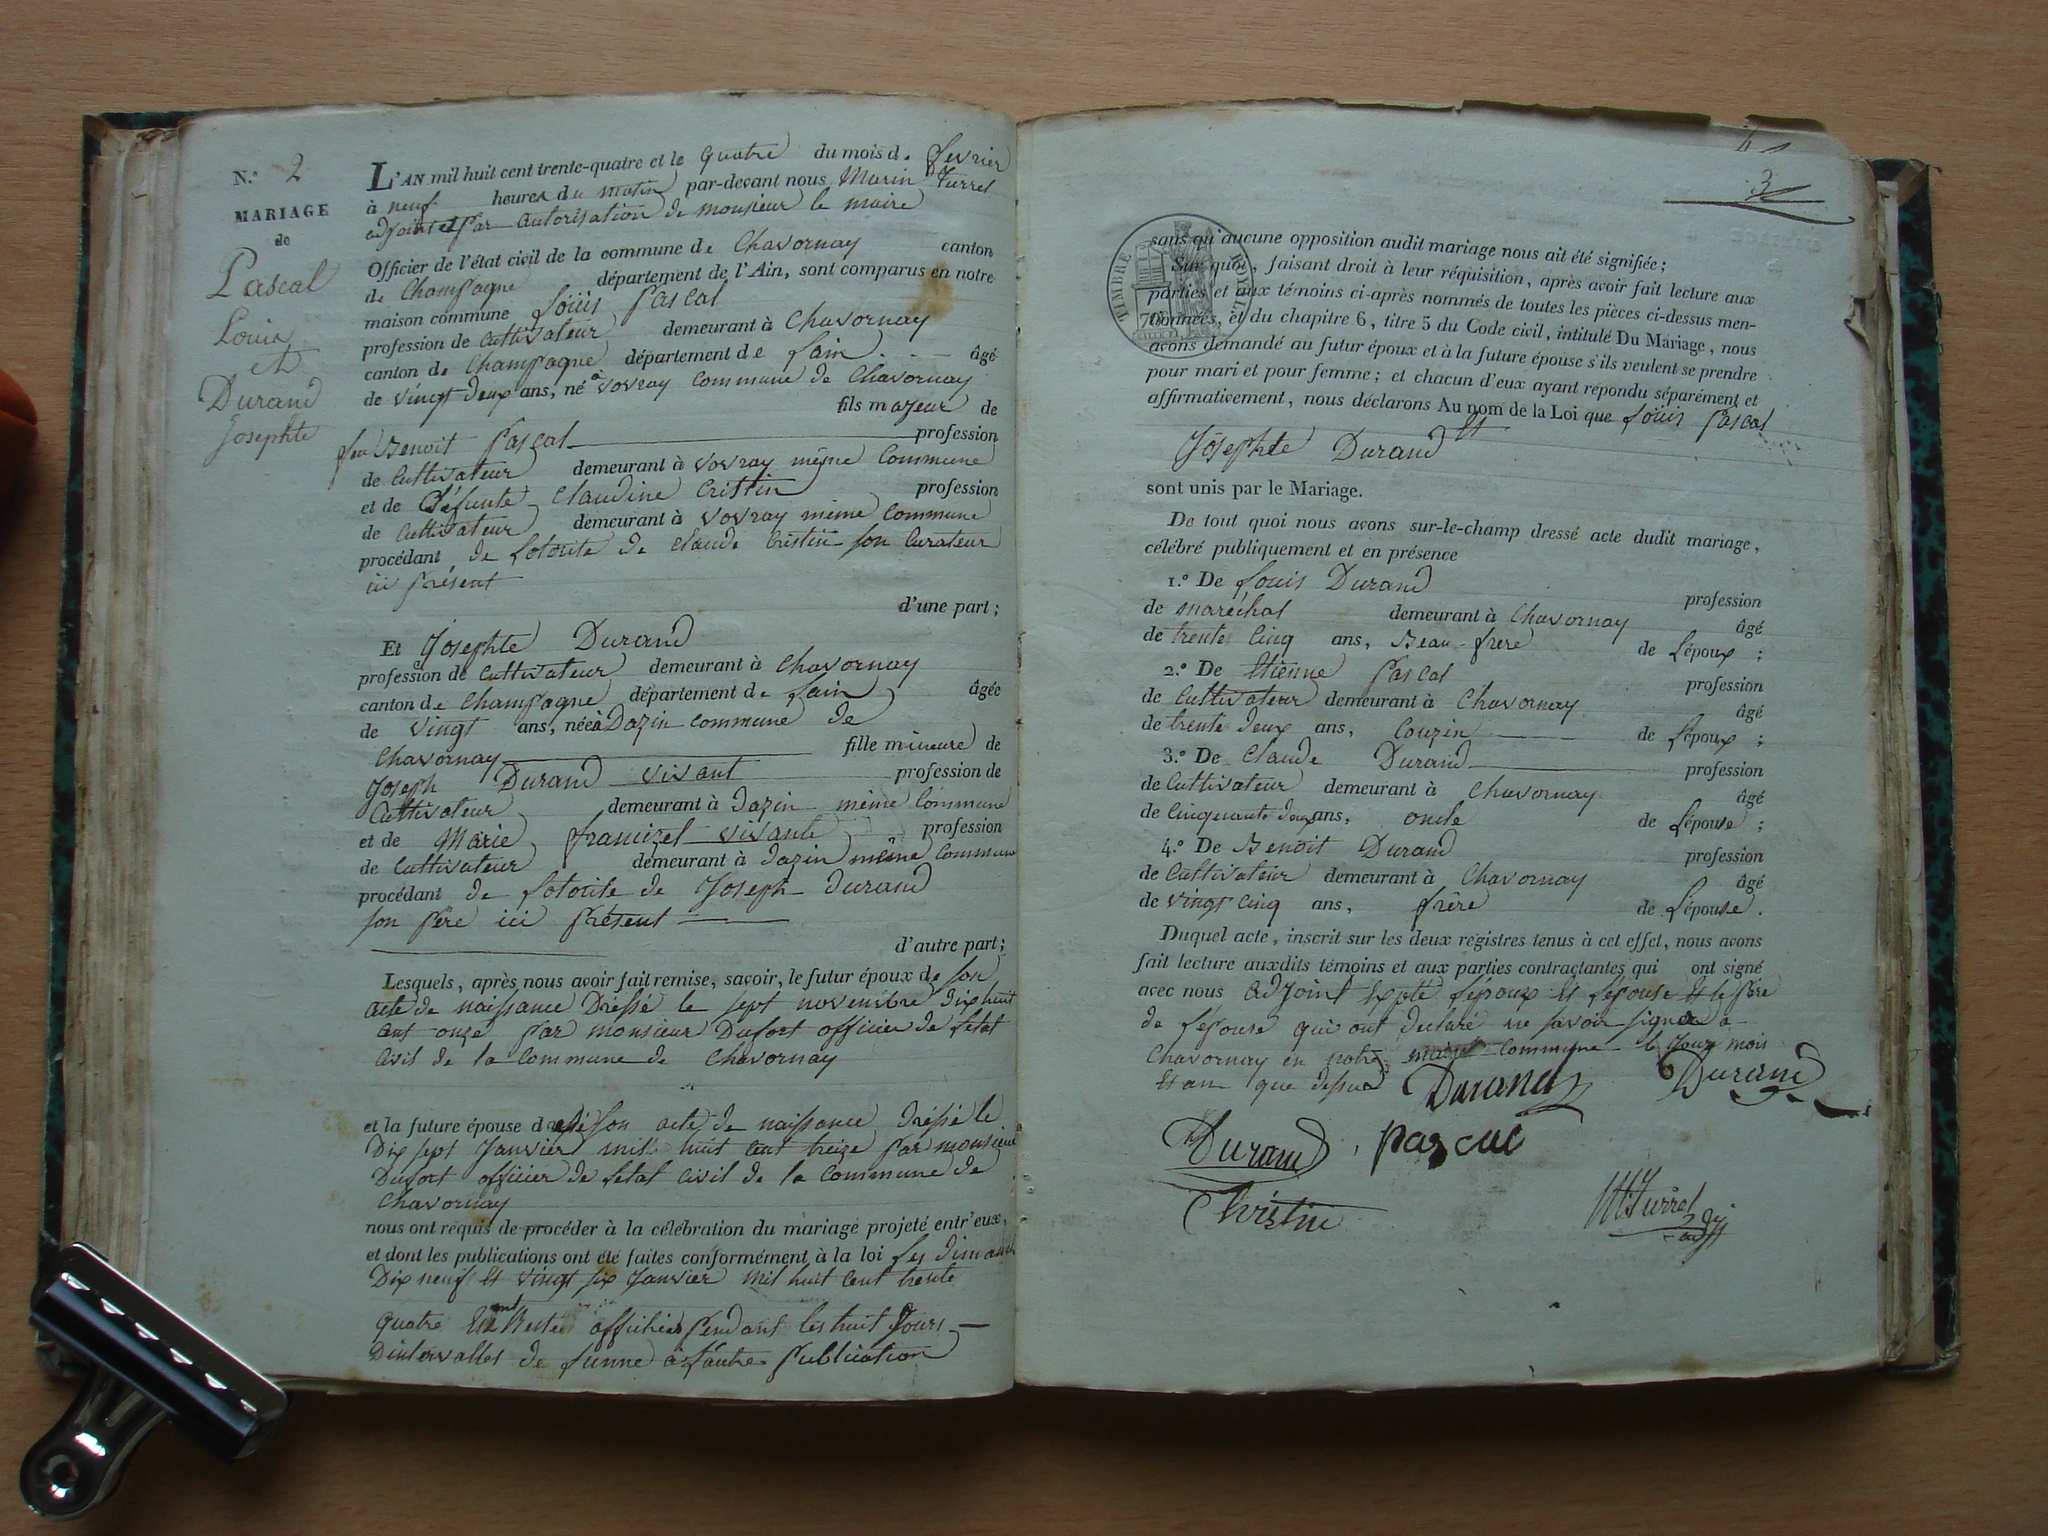 N.° 2
MARIAGE
de
Pascal
Louis
et
Durand
Josephte
L'AN mil huit cent trente-quatre et le quatre du mois de fevrier
à neuf heures du matin par-devant nous Marin Turrel
adjoint et par autorisation de monsieur le maire
Officier de l'état civil de la commune de Chavornay canton
de Champagne département de l'Ain, sont comparus en notre
maison commune Loüis Pascal
profession de Cultivateur demeurant à Chavornay
canton de Champagne département de Lain âgé
de vingt deux ans, né à vovray commune de Chavornay
fils majeur de
feu Benoit Pascal profession
de Cultivateur demeurant à vovray même Commune
et de défunte Claudine Cristin profession
de Cultivateur demeurant à vovray même Commune
procédant de Lotorité de Claude Cristin son Curateur
ici présent
d'une part;
Et Josephte Durand
profession de Cultivateur demeurant à Chavornay
canton de Champagne département de Lain âgée
de vingt ans, née à Dazin commune de
Chavornay fille mineure de
Joseph Durand vivant profession de
Cultivateur demeurant à Dazin même Commune
et de Marie vivante profession
de Cultivateur demeurant à Dazin même Commune
procédant de Lotorité de Joseph Durand
son père ici présent
d'autre part;
Lesquels, après nous avoir fait remise, savoir, le futur époux de son
acte de naissance Dressé le sept novembre dixhuit
cent onze par monsieur Dufort officier de Letat
Civil de la Commune de Chavornay
et la future épouse de son acte de naissance dréssé le
Dix sept Janvier mil huit cent treize par monsieur
Dufort officier de Letat Civil de la Commune de
Chavornay
nous ont requis de procéder à la célébration du mariage projeté entr'eux,
et dont les publications ont été faites conformément à la loi Les dimanche
Dix neuf et vingt six Janvier mil huit Cent trente
quatre affichées pendant les huit Jours
Dintervalles de Lunne à Lautre publication
3
TIMBRE ROYAL
sans qu'aucune opposition audit mariage nous ait été signifiée;
Sur quoi, faisant droit à leur réquisition, après avoir fait lecture aux
parties et aux témoins ci-après nommés de toutes les pièces ci-dessus men-
tionnées, et du chapitre 6, titre 5 du Code civil, intitulé Du Mariage, nous
avons demandé au futur époux et à la future épouse s'ils veulent se prendre
pour mari et pour femme; et chacun d'eux ayant répondu séparément et
affirmativement, nous déclarons Au nom de la Loi que Loüis Pascal
et
Josephte Durand
sont unis par le Mariage.
De tout quoi nous avons sur-le-champ dressé acte dudit mariage,
célébré publiquement et en présence
1.° De Louis Durand profession
de maréchal demeurant à Chavornay âgé
de trente Cinq ans, Beau-frere de Lépoux;
2.° De Etienne Pascal profession
de Cultivateur demeurant à Chavornay âgé
de trente deux ans, Couzin de Lépoux;
3.° De Claude Durand profession
de Cultivateur demeurant à Chavornay âgé
de Cinquante deux ans, oncle de Lépouse;
4.° De Benoit Durand profession
de Cultivateur demeurant à Chavornay âgé
de vingt Cinq ans, frère de Lépouse.
Duquel acte, inscrit sur les deux registres tenus à cet effet, nous avons
fait lecture auxdits témoins et aux parties contractantes qui ont signé
avec nous adjoint Expté Lépoux et Lépouse et le père
de Lépouse qui ont declaré ne savoir signer a
Chavornay en notre commune le Jour mois
Et an que dessus Durand Durand
Durand Pascal
Christin M Turrel
adj